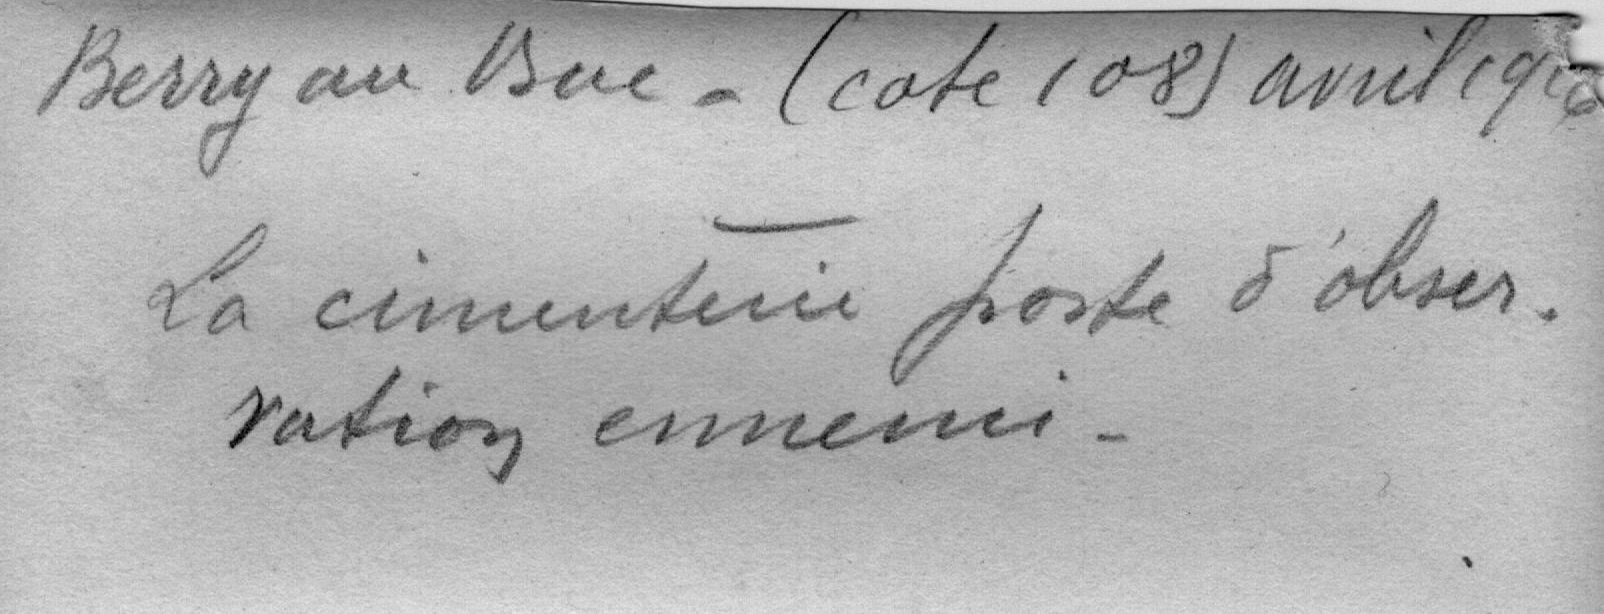 Berry au Bac - (cote 108) avril 1916
La cimenterie poste d'obser.
vation ennemi -